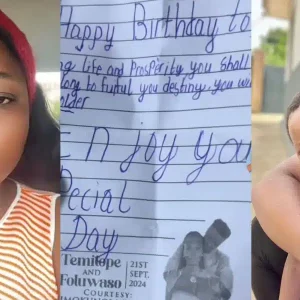 Happy Birthday to
ng life and Prosperity you shall
ory to you destiny, you
older
Enjoy You
pecial
Day
Temitope
AND
Foluwaso
21ST
SEPT.
2024
COURTESY: